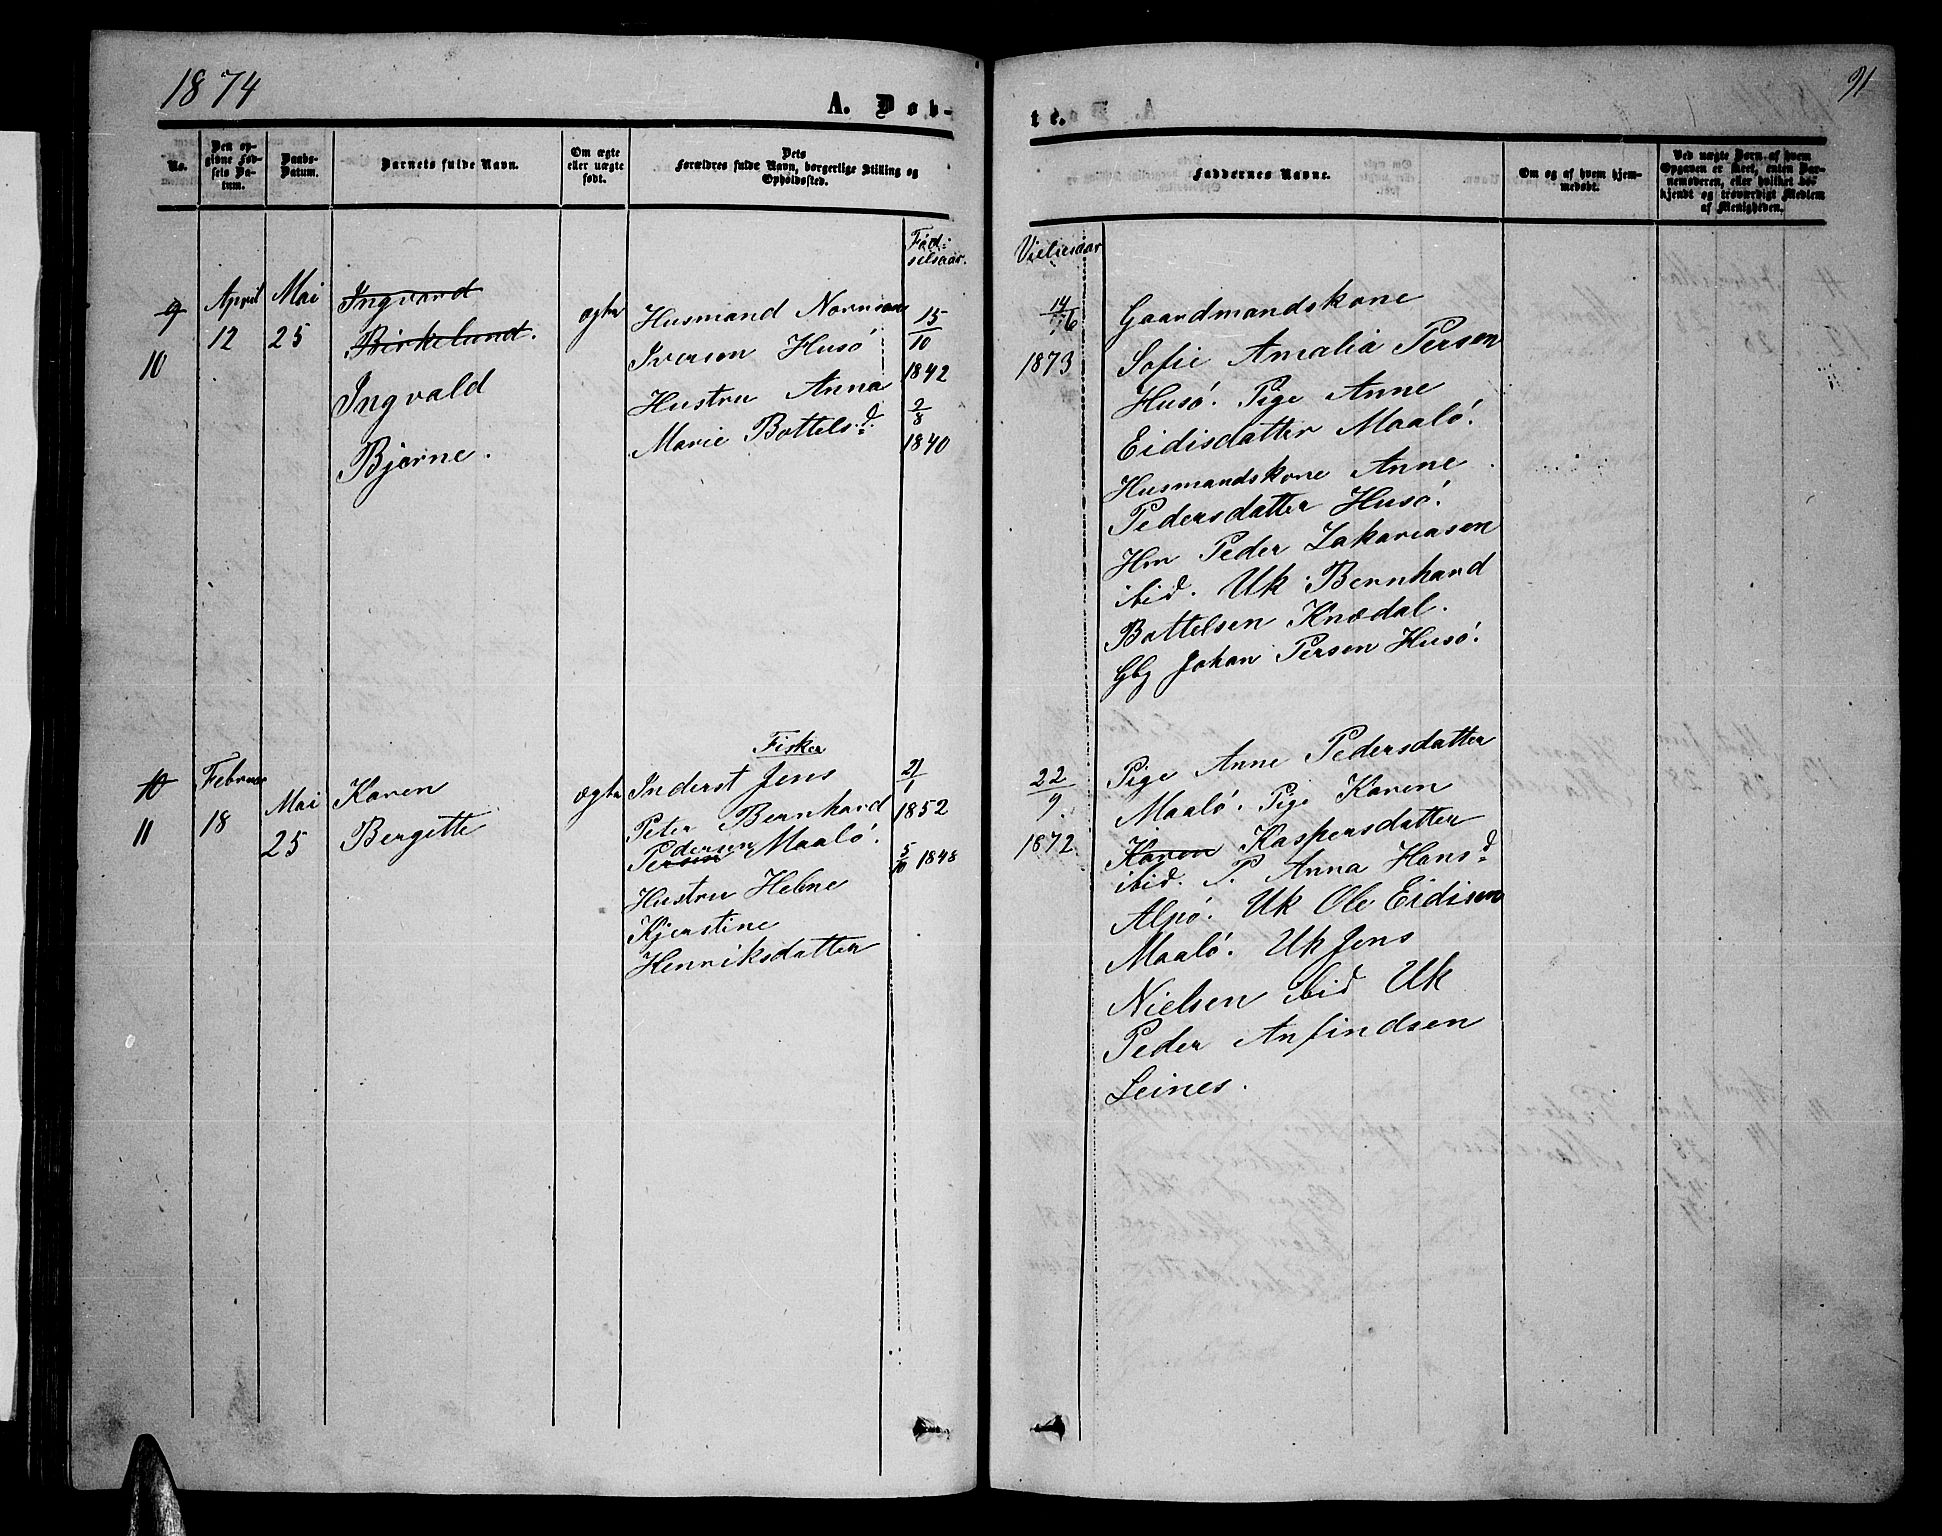 1874
A. Døb-
No.
Den op-
givne Fød-
sels Da-
tum.
Daabs-
Datum.
Barnets fulde Navn.
Om ægte
eller uægte
født.
Dets
Forældres fulde Navn, borgerlige Stilling og
Opholdssted.
Fød:
selsaar.
9
10
April
12
Mai
25
Ingvard
Birkelund.
Ingvald
Bjarne.
ægte
Husmand Norman
Iverson Husø
Hustru Anna
Marie Bottelsd.
15
10
1842
2
8
1840
10
11
Februar
18
Mai
25
Karen
Bergette
ægte
Fisker
Inderst Jens
Peter Bernhard
Pedersen
Persen Maalø.
Hustru Helene
Kjerstine
Henriksdatter
21
1
1852
5
10 1848
91
te.
Faddernes Navne.
Om og af hvem hjem-
medøbt.
Ved uægte Born, af hvem
Opgaven er skeet, enten Bar-
nemoderen, eller hvilket be-
kjendt og troværdigt Medlem
af Menigheden.
Vielsesaar
14
1873
Gaardmandskone
Sofie Amalia Persen
Husø. Pige Anne
Eidisdatter Maalø.
Husmandskone Anne
Pedersdatter Husø.
Hm Peder Zakariasen
ibid. Uk Bernhard
Bottelsen Knædal.
Gbg Johan Persen Husø.
22
9
1872
Pige Anne Pedersdatter
Maalø. Pige Karen
Karen Kaspersdatter
ibid. P. Anna Hansd
Alpø. Uk Ole Eidisen
Maalø. Uk Jens
Nielsen ibid Uk
Peder Anfindsen
Leines.